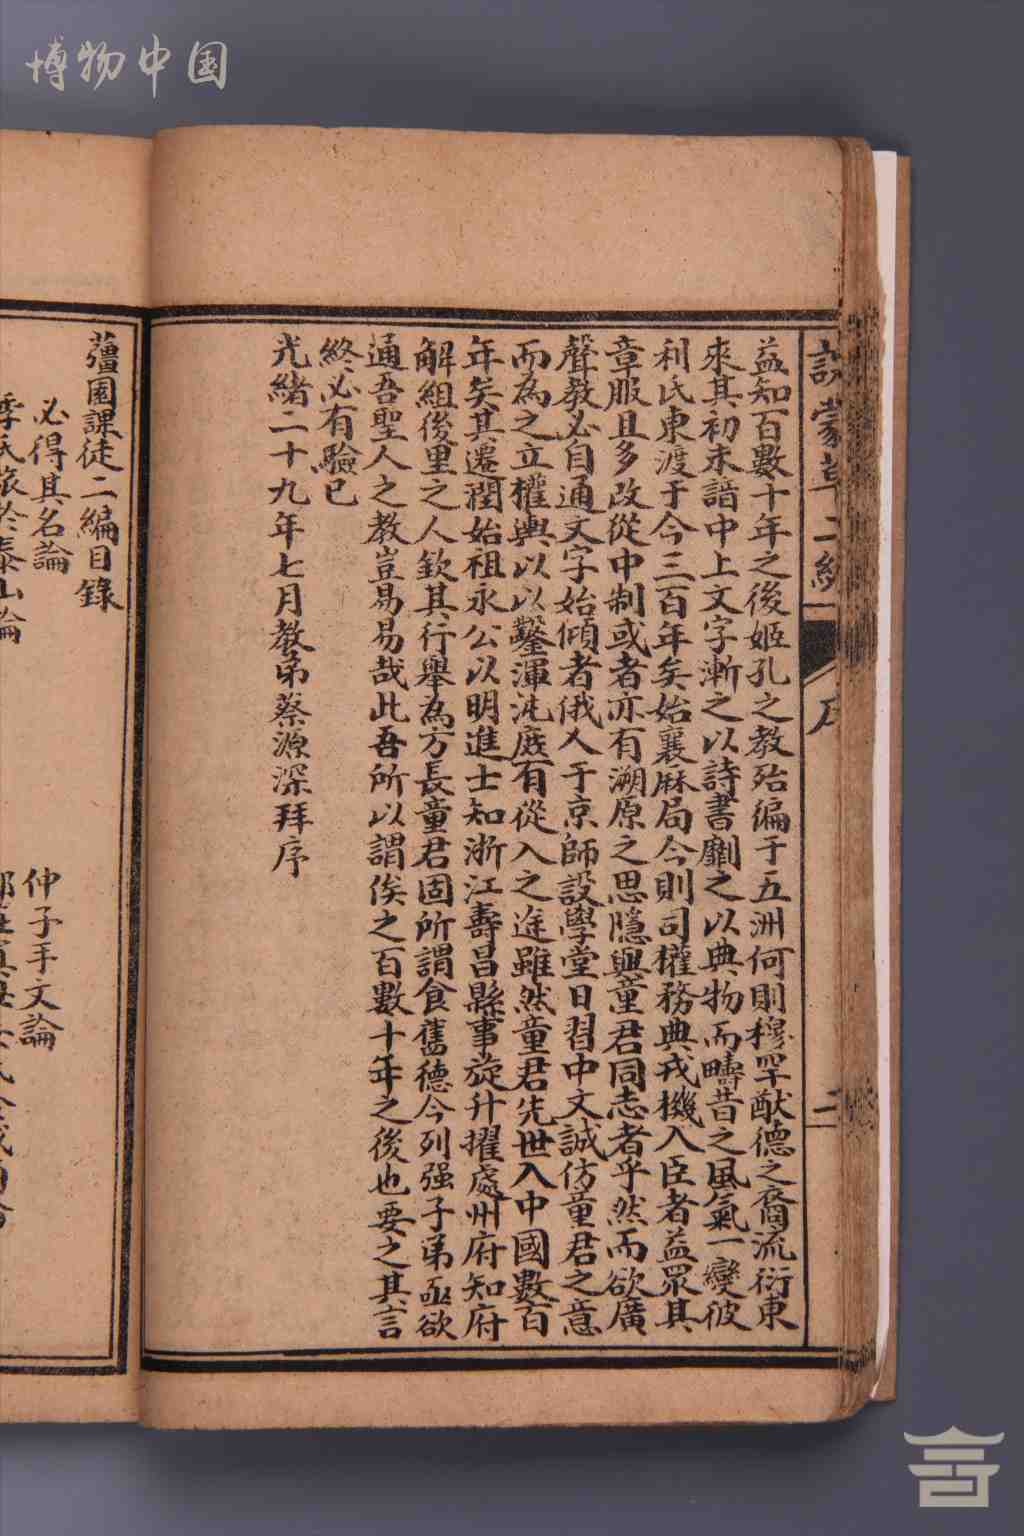 博物中国
蒙草二編
益知百數十年之後姬孔之教殆徧于五洲何則穆罕猷德之裔流衍東
來其初未諳中上文字漸之以詩書劘之以典物而疇昔之風氣一變彼
利氏東渡于今三百年矣始襄厤局今則司權務典戎機入臣者益眾其
章服且多改從中制或者亦有溯原之思隱與童君同志者乎然而欲廣
聲教必自通文字始傾者俄人于京師設學堂日習中文誠仿童君之意
而為之立權輿以以鑿渾沌庶有從入之途雖然童君先世入中國數百
年矣其遷潤始祖永公以明進士知浙江壽昌縣事旋升擢處州府知府
解組後里之人欽其行舉為方長童君固所謂食舊德今列强子弟亟欲
通吾聖人之教豈易易哉此吾所以謂俟之百數十年之後也要之其言
終必有驗已
光緒二十九年七月教弟蔡源深拜序
薑園課徒二編目錄
必得其名論
仲子手文論
季氏旅於泰山論